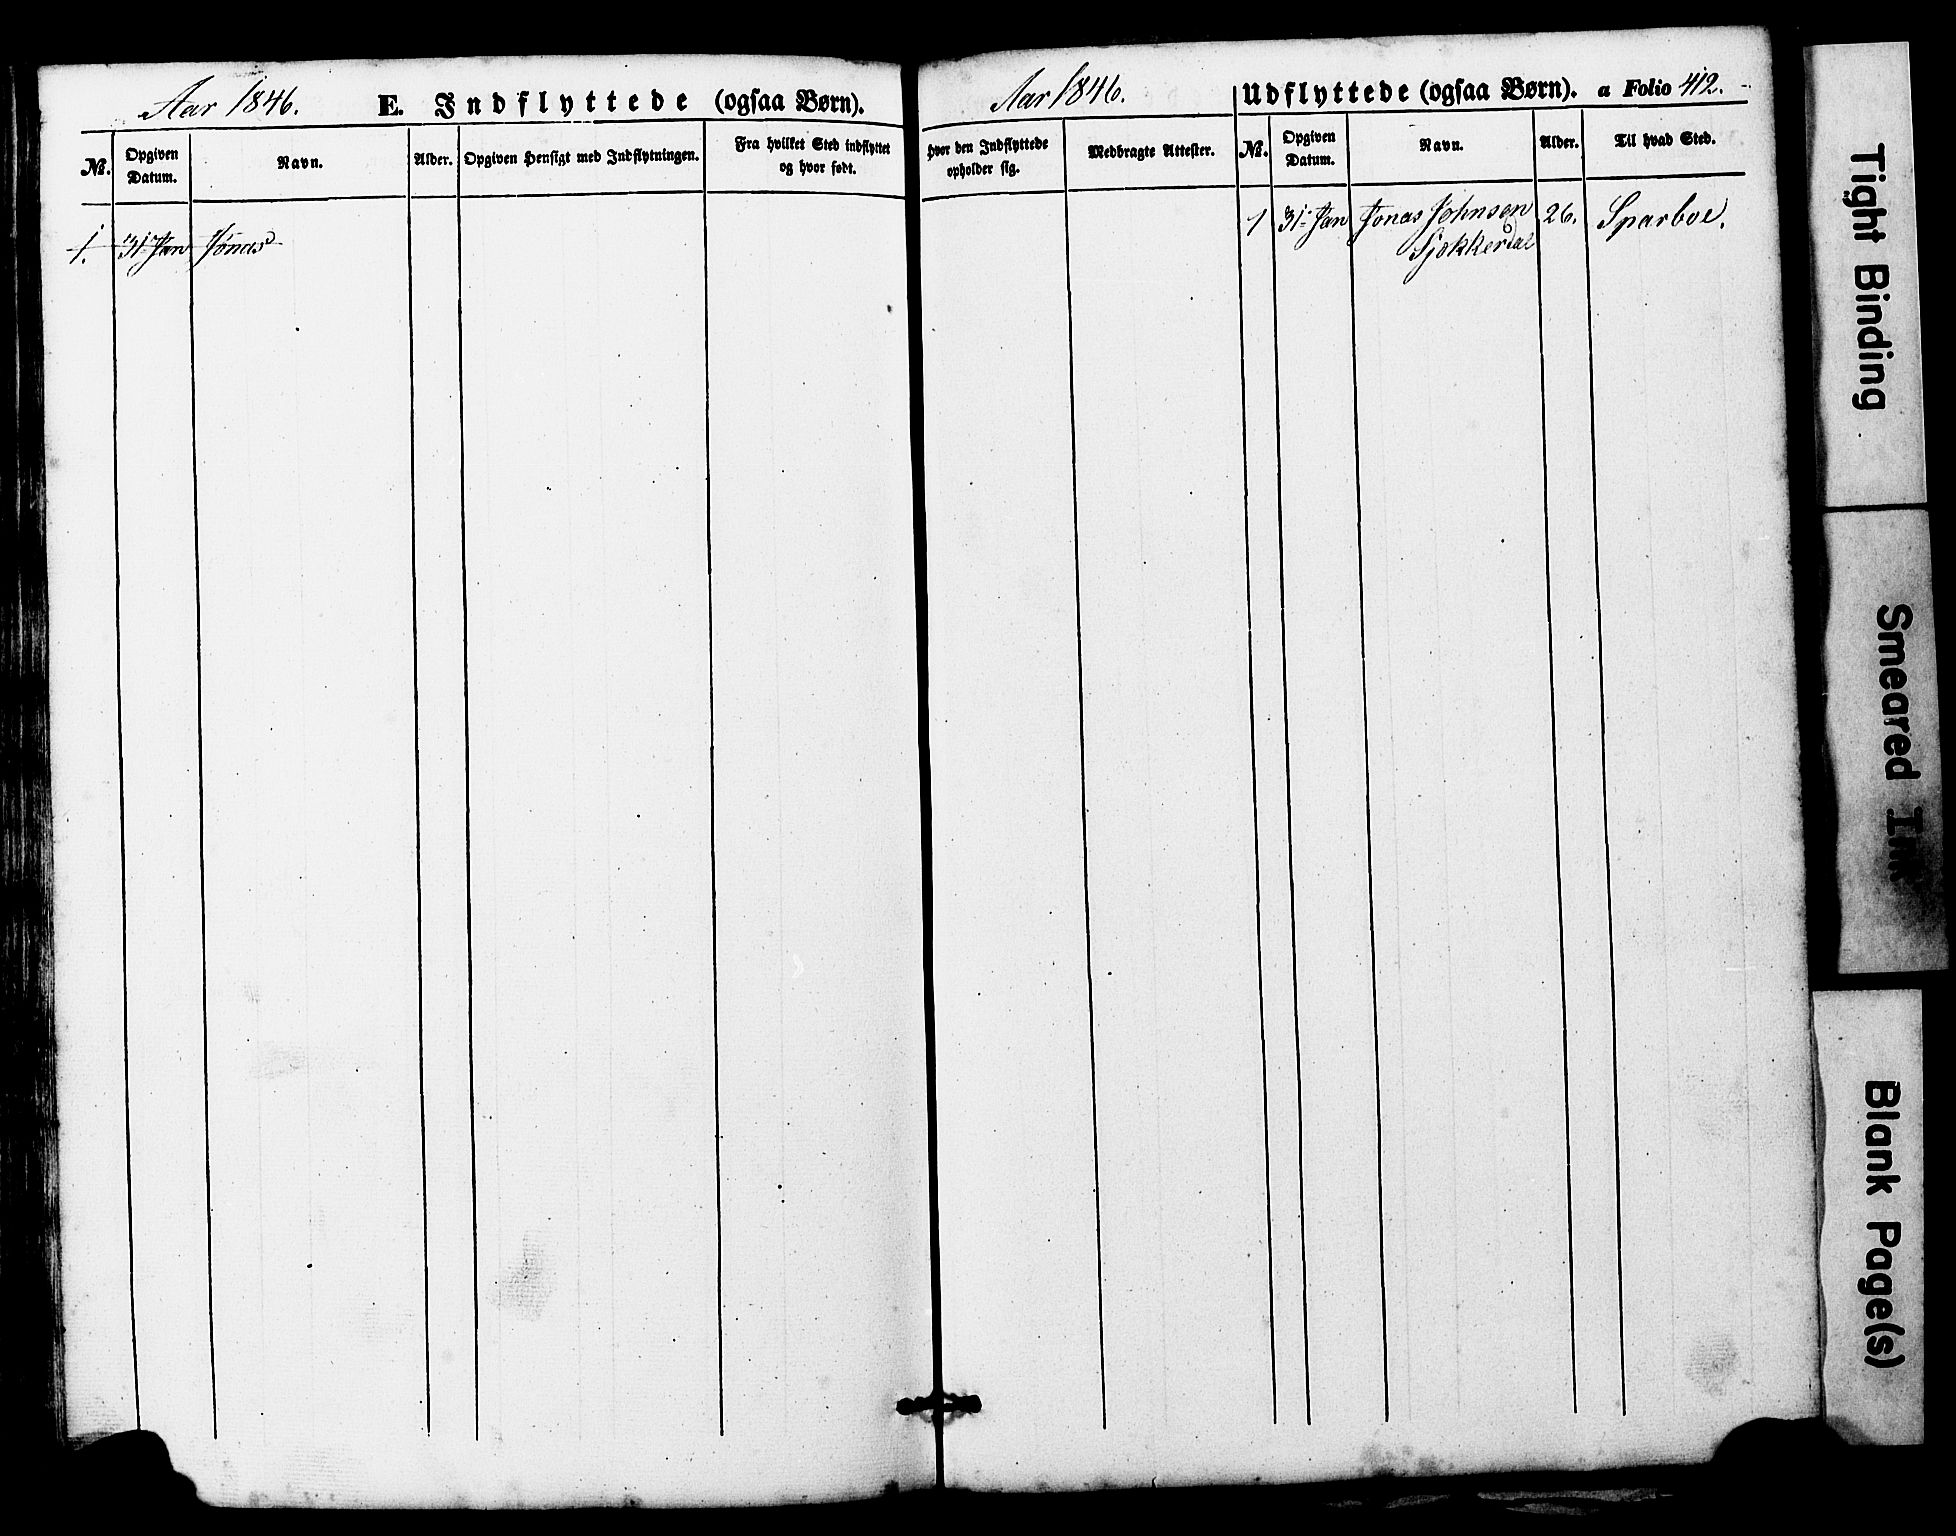 Aar 1846. E. Indflyttede (ogsaa Børn).
No. Opgiven Datum. Navn. Alder. Opgiven Hensigt med Indflytningen. Fra hvilket Sted indflyttet og hvor født.
1. 31 Jan Jonas
Aar 1846. Udflyttede (ogsaa Børn). a Folio 412.
Hvor den Indflyttede opholder sig. Medbragte Attester. No. Opgiven Datum. Navn. Alder. Til hvad Sted.
1 31 Jan Jonas Johnsen 26. Sparboe.
Sjøkkerdal
Tight Binding
Smeared Ink
Blank Page(s)